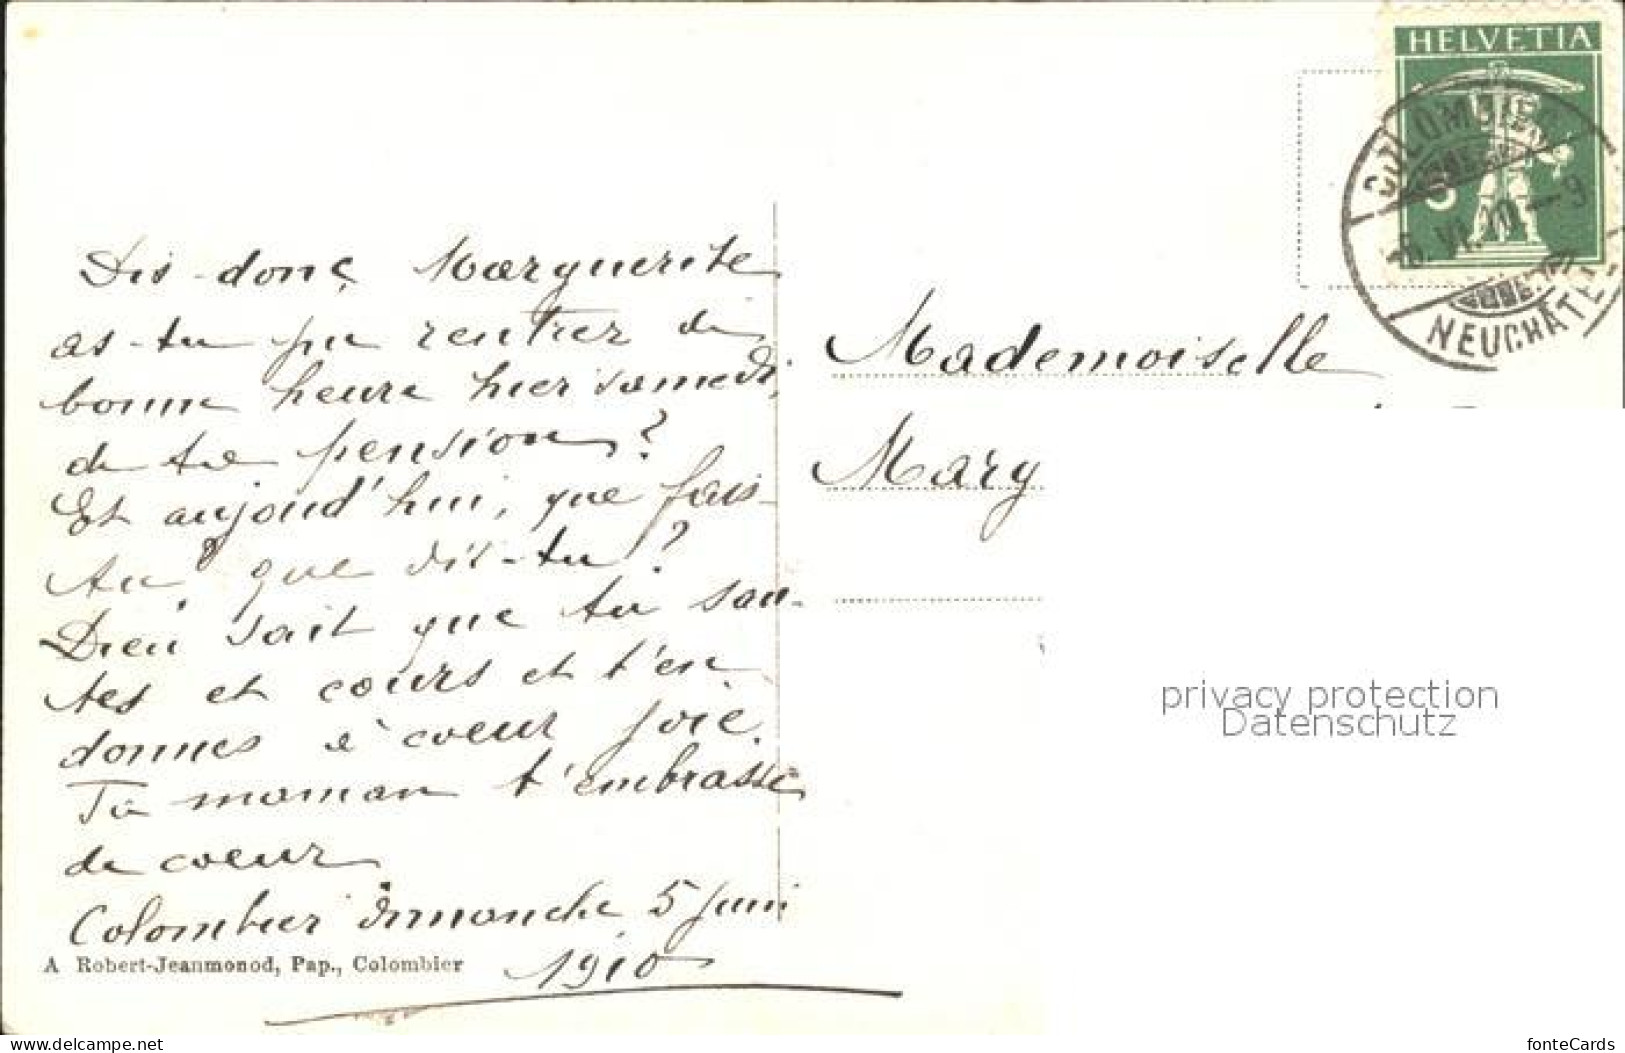 HELVETIA
5
COLOMBIER
VI.10-9
NEUCHÂTEL
Dis-donc Marguerite
as-tu pu rentrer de
bonne heure hier samedi,
de ta pension?
Et aujourd'hui, que fais-
tu, que dis-tu?
Dieu sait que tu sau-
tes et cours et t'en
donnes à coeur joie.
Ta maman t'embrasse
de coeur
Colombier dimanche 5 Juin
1910
A Robert-Jeanmonod, Pap., Colombier
Mademoiselle
Mary
privacy protection
Datenschutz
www.delcampe.net
fonteCards